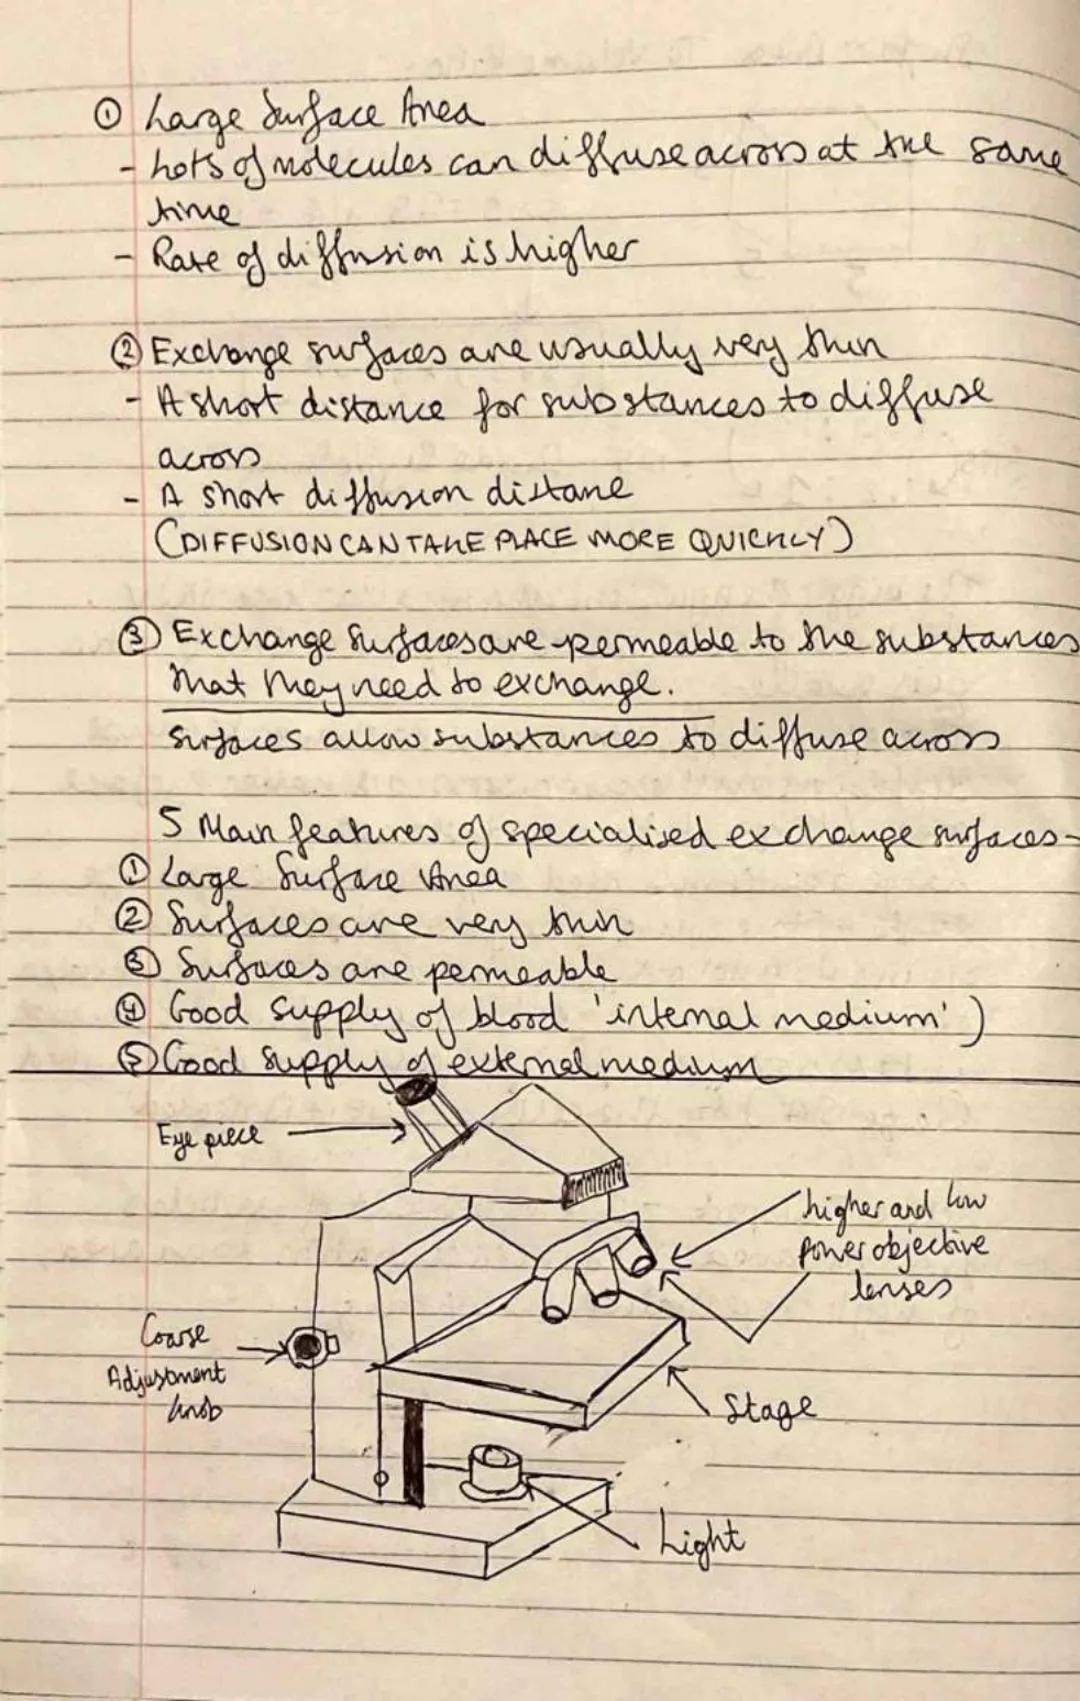 ① Large Surface Area
- Lots of molecules can diffuse across at the same
time
- Rate of diffusion is higher
② Exchange surfaces are usually very thin
- A short distance for substances to diffuse
across
- A short diffusion distane
(DIFFUSION CAN TAKE PLACE MORE QUICKLY)
③ Exchange Surfaces are permeable to the substances
that they need to exchange.
Surfaces allow substances to diffuse across
5 Main features of specialised exchange surfaces-
① Large Surface Area
② Surfaces are very thin
③ Surfaces are permeable
④ Good supply of blood 'internal medium')
⑤ Good supply of external medium
Eye piece
higher and low
power objective
lenses
Coarse
Adjustment
knob
Stage
Light